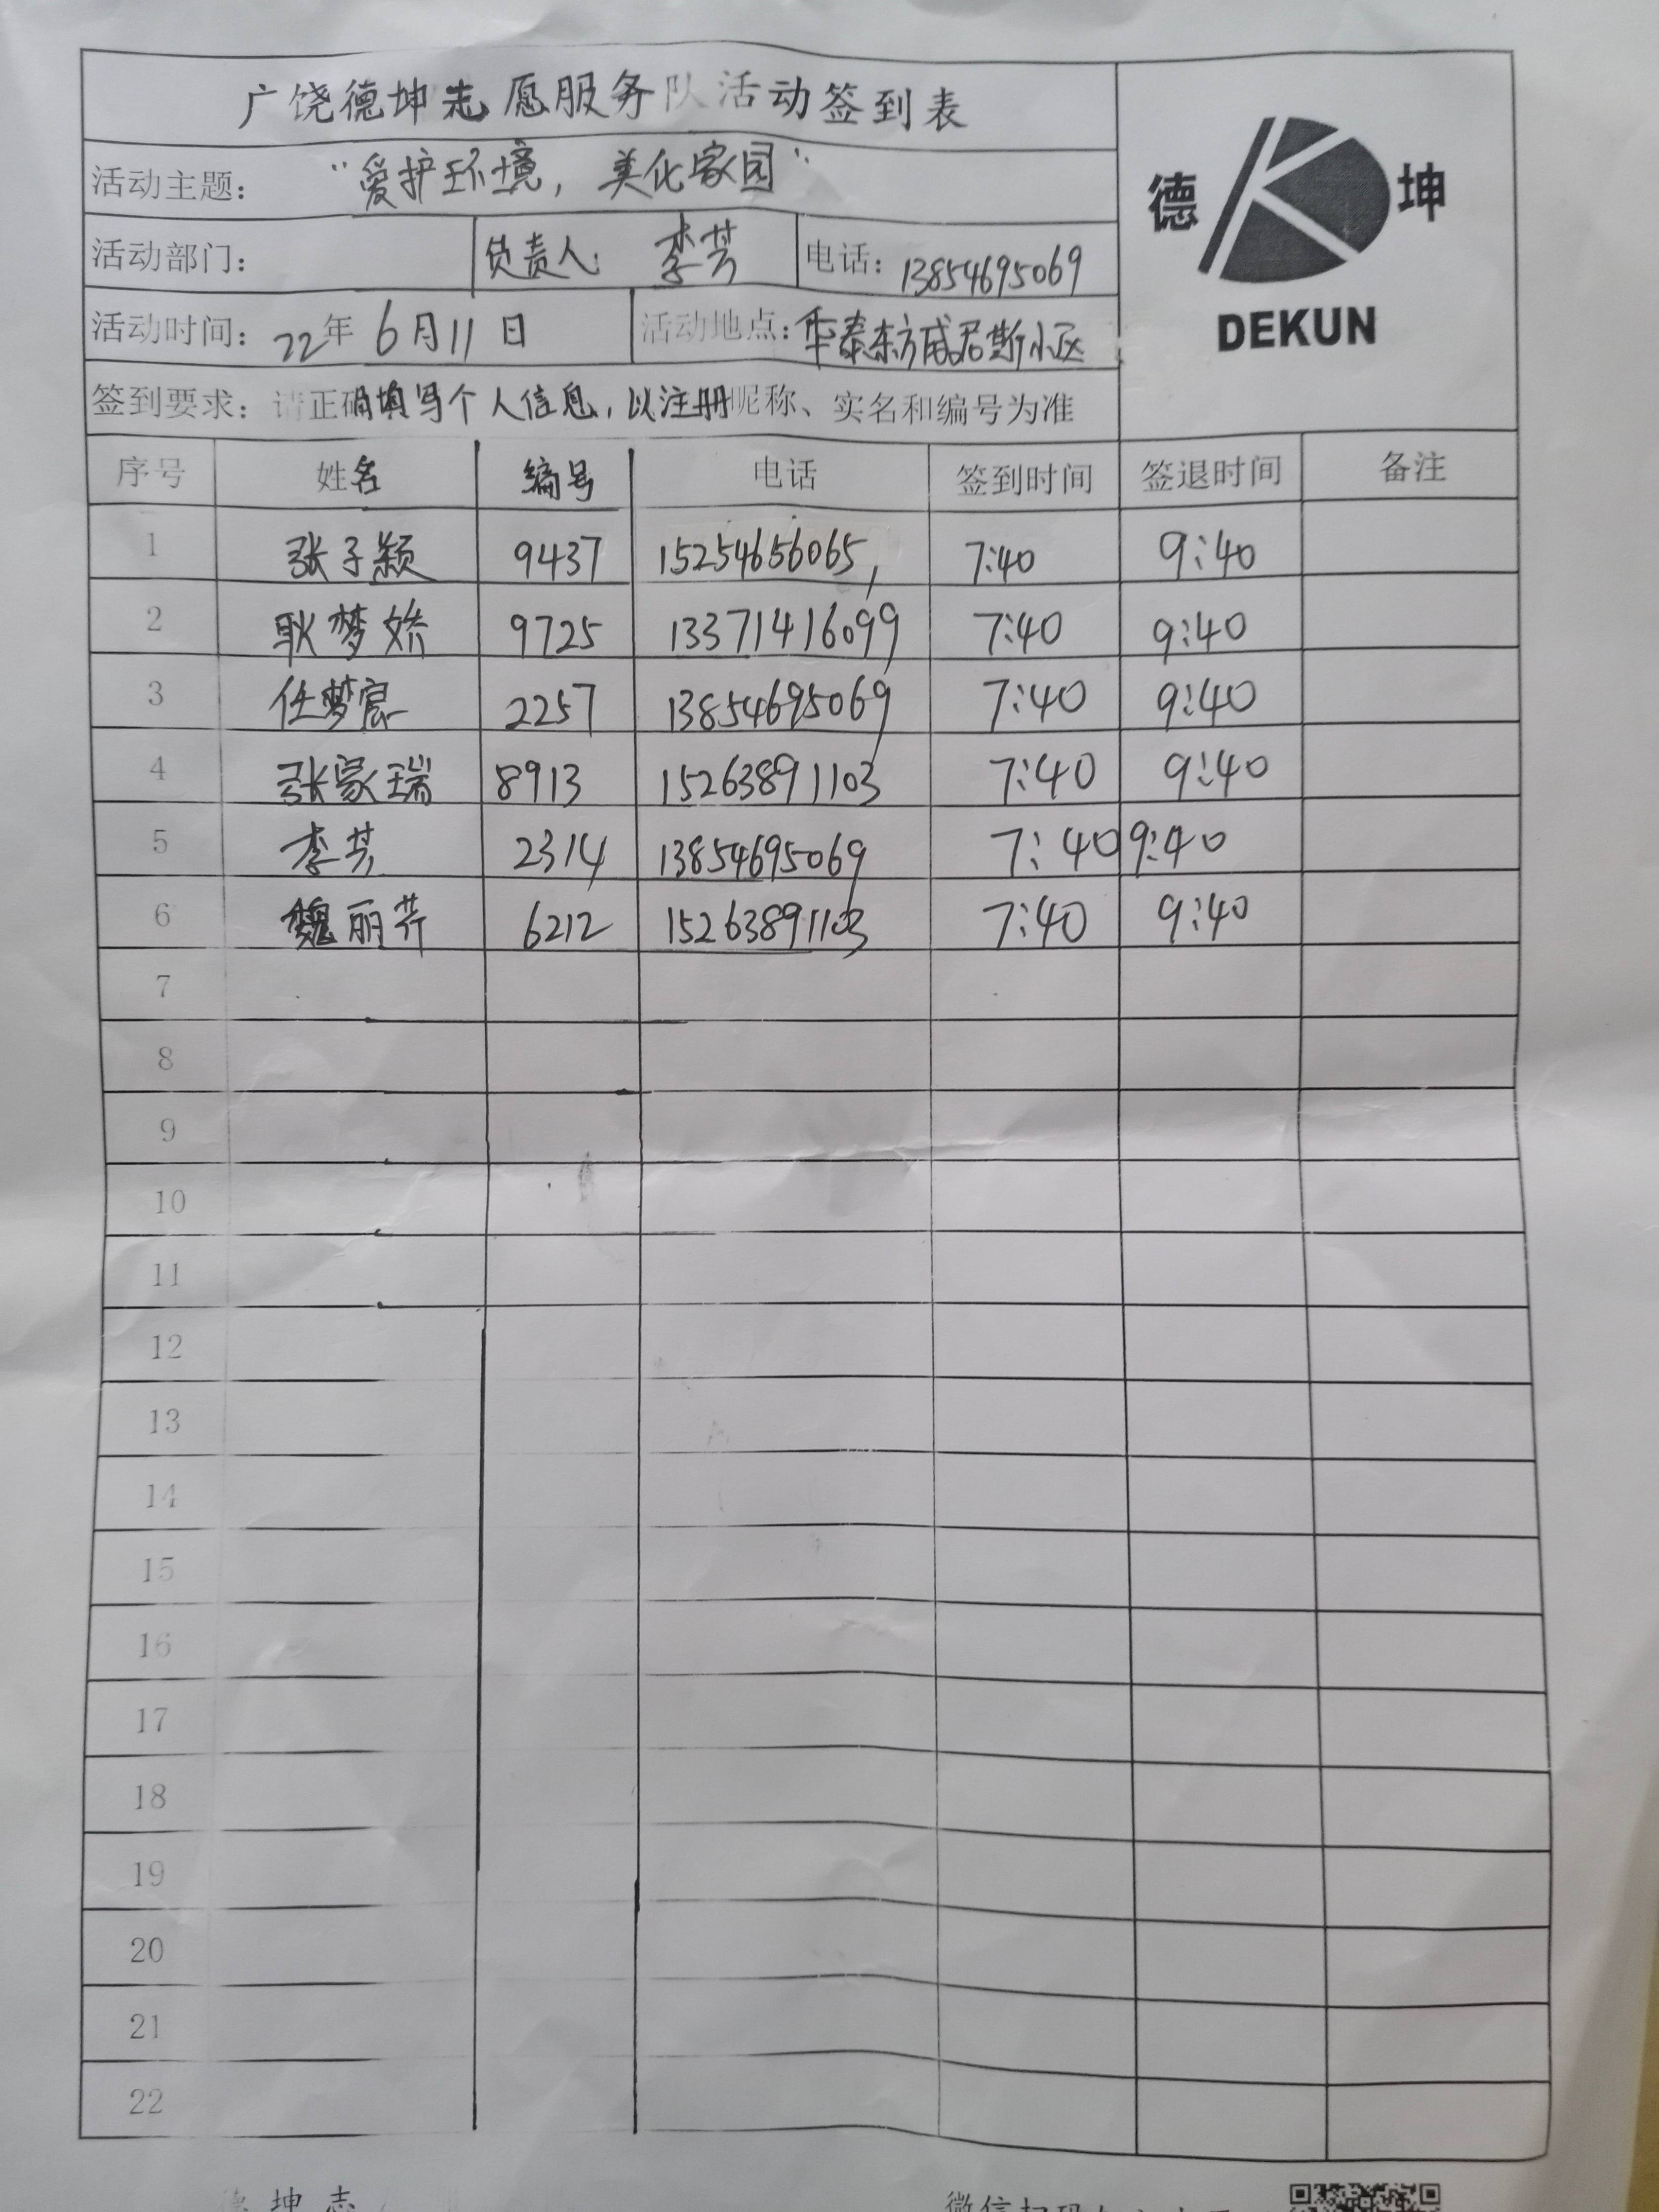 广饶德坤志愿服务队活动签到表
活动主题： “爱护环境，美化家园”
德 坤
DEKUN
活动部门： 负责人： 李芳 电话：13854695069
活动时间：22年6月11日 活动地点：华泰东方威尼斯小区
签到要求：请正确填写个人信息，以注册昵称、实名和编号为准
序号 姓名 编号 电话 签到时间 签退时间 备注
1 张子颖 9437 15254656065, 7:40 9:40
2 耿梦娇 9725 13371416099 7:40 9:40
3 任梦宸 2257 13854695069 7:40 9:40
4 张家瑞 8913 15263891103 7:40 9:40
5 李芳 2314 13854695069 7:40 9:40
6 魏丽芹 6212 15263891103 7:40 9:40
7
8
9
10
11
12
13
14
15
16
17
18
19
20
21
22
德坤志
微信扫码